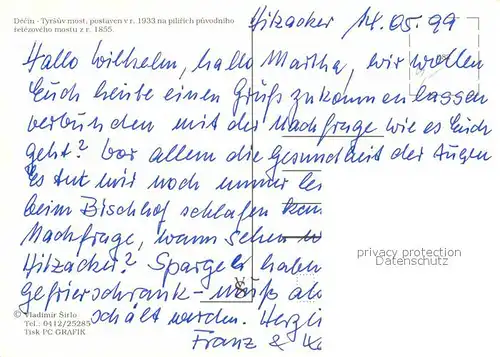 Děčín - Tyršův most, postaven v r. 1933 na pilířích původního
řetězového mostu z r. 1855.
Hitzacker 14.05.99
Hallo Wilhelm, hallo Martha, wir wollen
Euch heute einen Gruß zukommen lassen
verbunden mit der Nachfrage wie es Euch
geht? Vor allem die Gesundheit der Augen
Es tut mir noch immer lei
beim Bischof schlafen
Nachfrage, wann sehen
Hitzacker? Spargel haben
Gefrierschrank - muß ab
schält werden. Herzli
Franz &
privacy protection
Datenschutz
© Vladimír Šírlo
Tel.: 0412/25285
Tisk PC GRAFIK